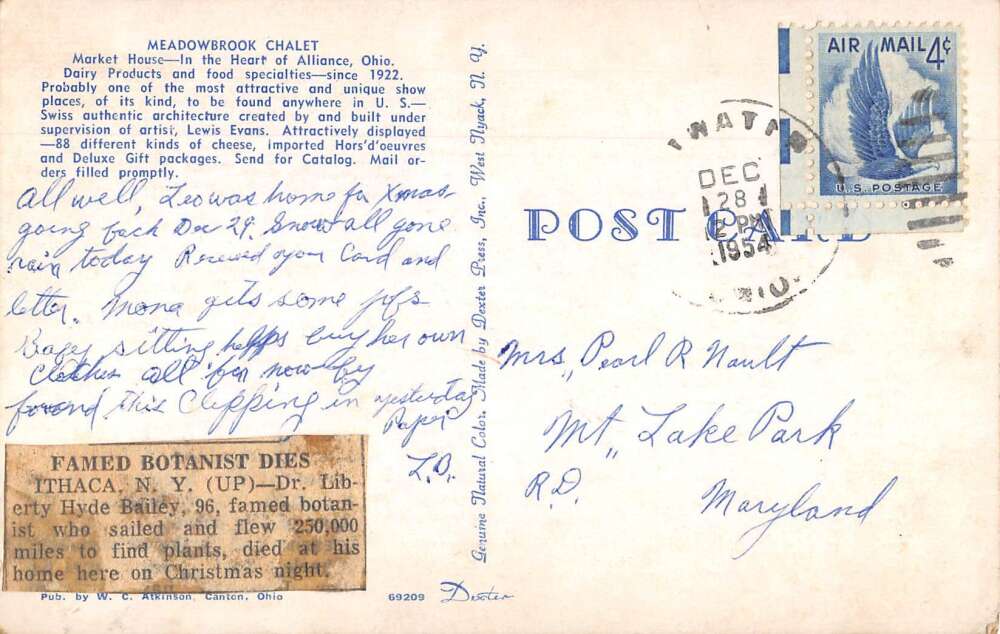 MEADOWBROOK CHALET
Market House—In the Heart of Alliance, Ohio.
Dairy Products and food specialties—since 1922.
Probably one of the most attractive and unique show
places, of its kind, to be found anywhere in U. S.—
Swiss authentic architecture created by and built under
supervision of artist, Lewis Evans. Attractively displayed
—88 different kinds of cheese, imported Hors'd'oeuvres
and Deluxe Gift packages. Send for Catalog. Mail or-
ders filled promptly.
All well, Leo was home for Xmas
going back Dec 29. Snow all gone
rain today Received your Card and
letter. Mona gets some jobs
Baby sitting helps buy her own
Clothes all for now by
found this Clipping in yesterday
Paper
L.D.
FAMED BOTANIST DIES
ITHACA, N. Y. (UP)—Dr. Lib-
erty Hyde Bailey, 96, famed botan-
ist who sailed and flew 250,000
miles to find plants, died at his
home here on Christmas night.
Pub. by W. C. Atkinson, Canton, Ohio
69209 Dexter
Genuine Natural Color. Made by Dexter Press, Inc., West Nyack, N. Y.
POST CARD
AIR MAIL 4¢
U.S. POSTAGE
DEC
28
2 PM
1954
Mrs, Pearl R Nault
Mt, Lake Park
R.D. Maryland